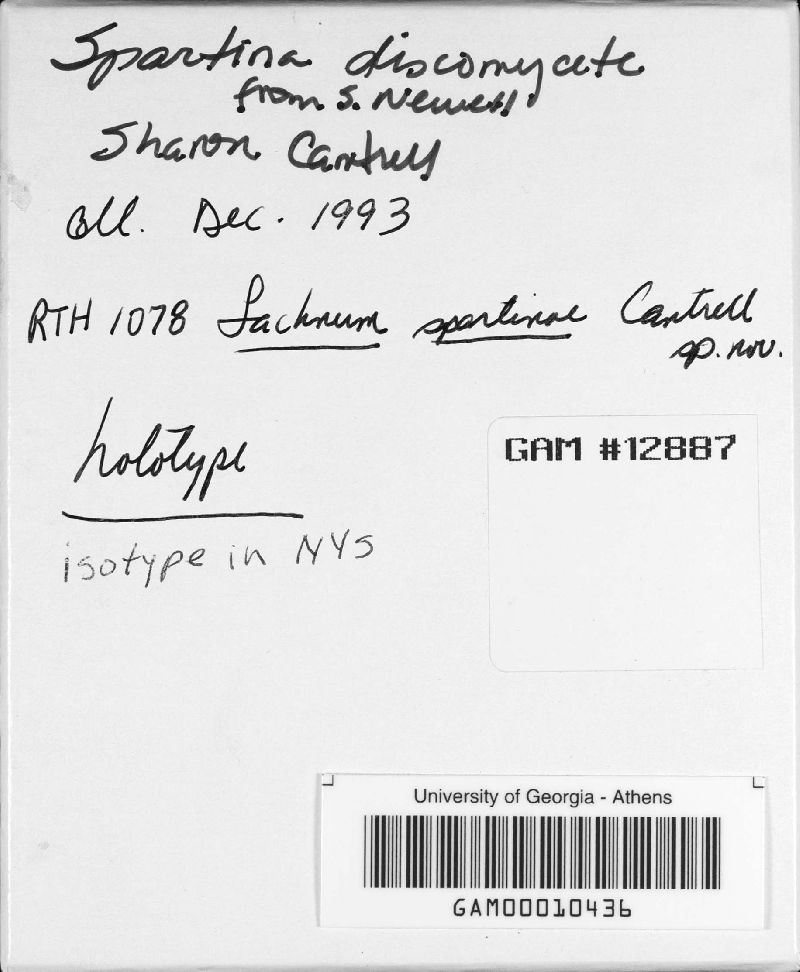 Spartina discomycete
from S. Newell
Sharon Cantrell
Coll. Dec. 1993
RTH 1078 Lachnum spartinae Cantrell
sp. nov.
holotype
GAM #12887
isotype in NYS
University of Georgia - Athens
GAM00010436